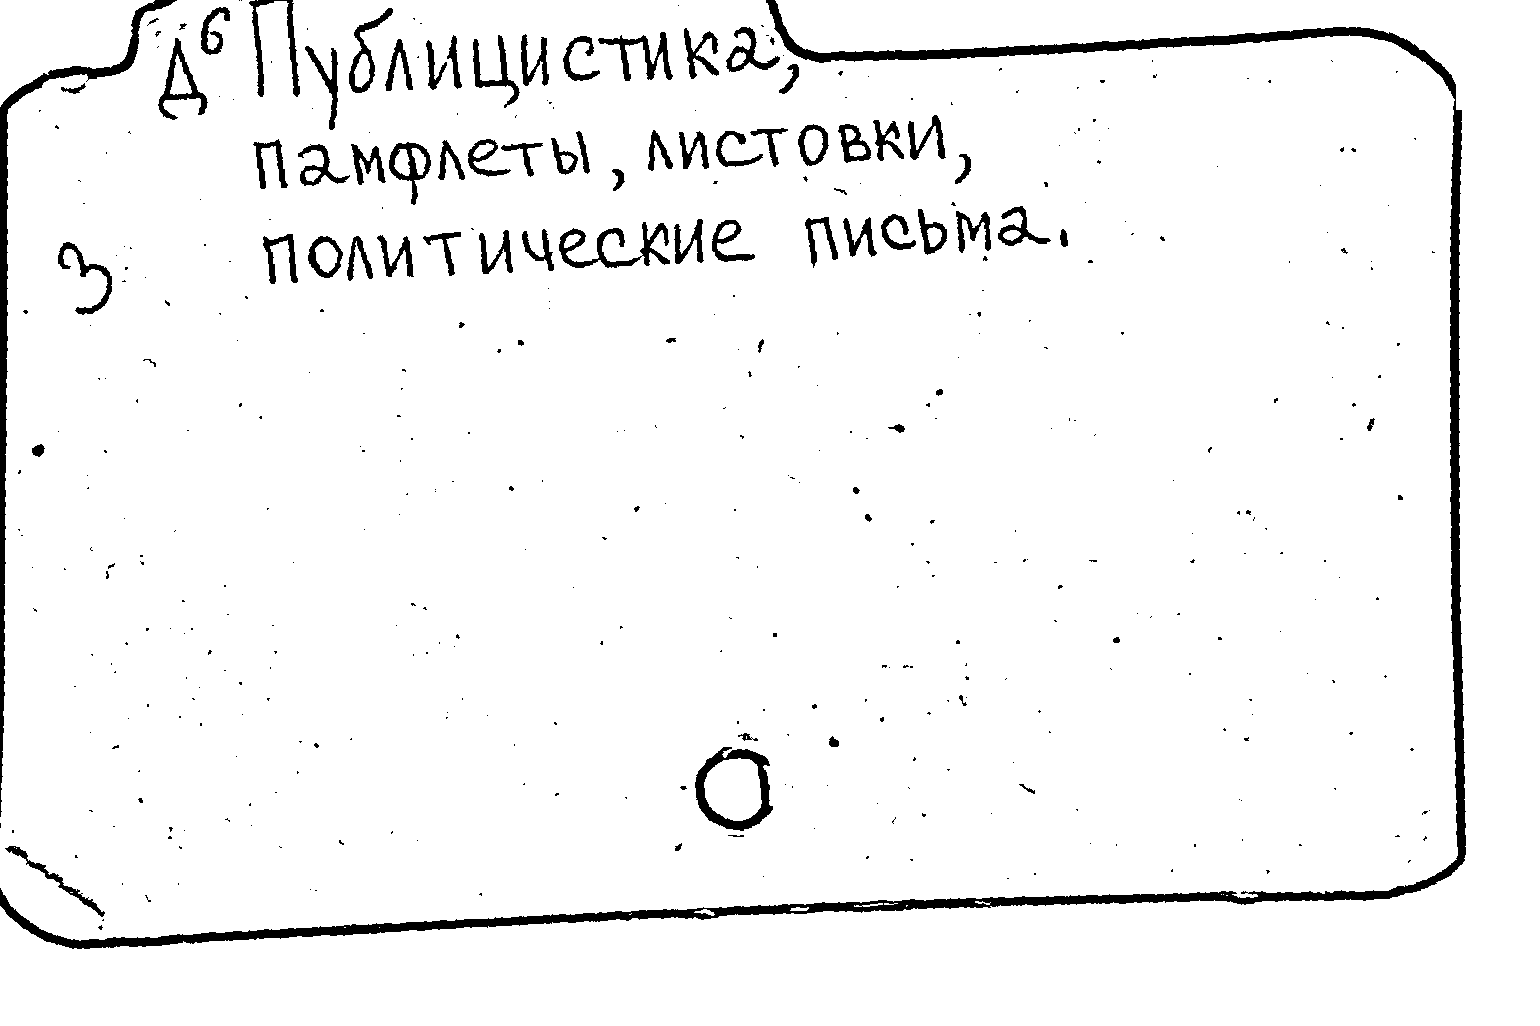 Д6 Публицистика,
памфлеты, листовки,
З политические письма.